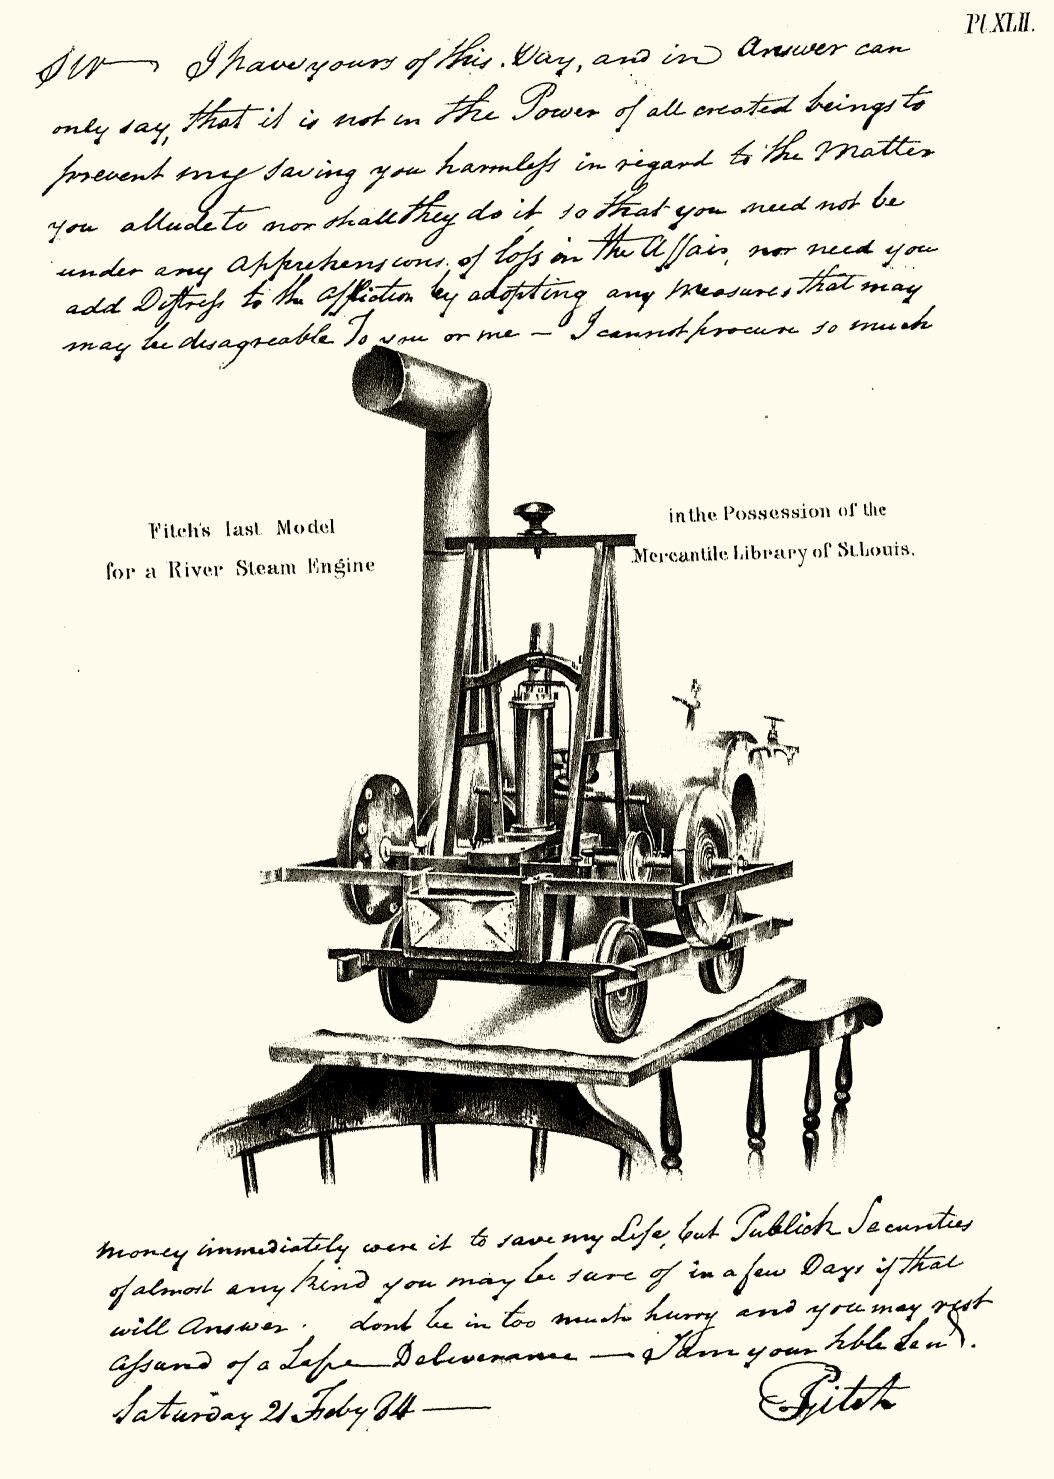 Pl. XLII.
Sir — I have yours of this Day, and in Answer can
only say, that it is not in the Power of all created beings to
prevent my saving you harmless in regard to the Matter
you allude to nor shall they do it, so that you need not be
under any Apprehensions, of loss in the Affair, nor need you
add Distress to the Affliction by adopting any Measures that may
may be disagreeable To you or me — I cannot procure so much
Fitch's last Model
for a River Steam Engine
in the Possession of the
Mercantile Library of St. Louis.
money immediately were it to save my Life, but Publick Securities
of almost any kind you may be sure of in a few Days if that
will Answer. dont be in too much hurry and you may rest
Assured of a Safe Deliverance — I am your hble Servt.
Saturday 21 Feby 84 —
Fitch